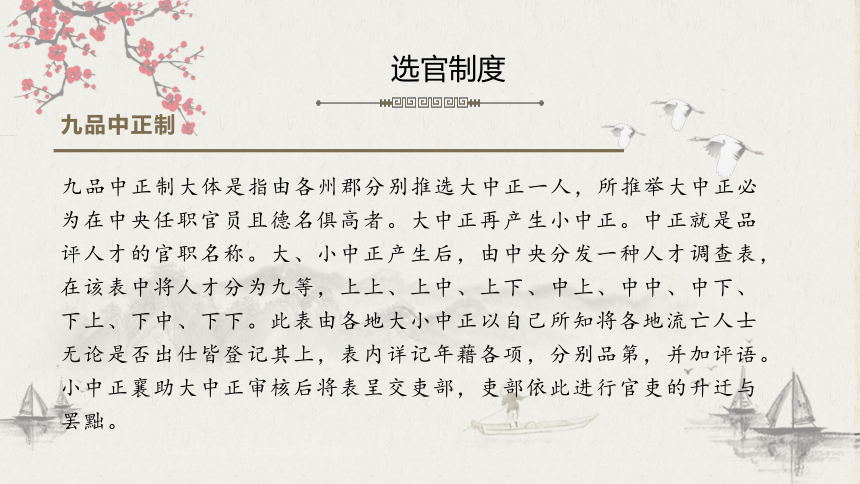 选官制度
九品中正制
九品中正制大体是指由各州郡分别推选大中正一人，所推举大中正必
为在中央任职官员且德名俱高者。大中正再产生小中正。中正就是品
评人才的官职名称。大、小中正产生后，由中央分发一种人才调查表，
在该表中将人才分为九等，上上、上中、上下、中上、中中、中下、
下上、下中、下下。此表由各地大小中正以自己所知将各地流亡人士
无论是否出仕皆登记其上，表内详记年藉各项，分别品第，并加评语。
小中正襄助大中正审核后将表呈交吏部，吏部依此进行官吏的升迁与
罢黜。